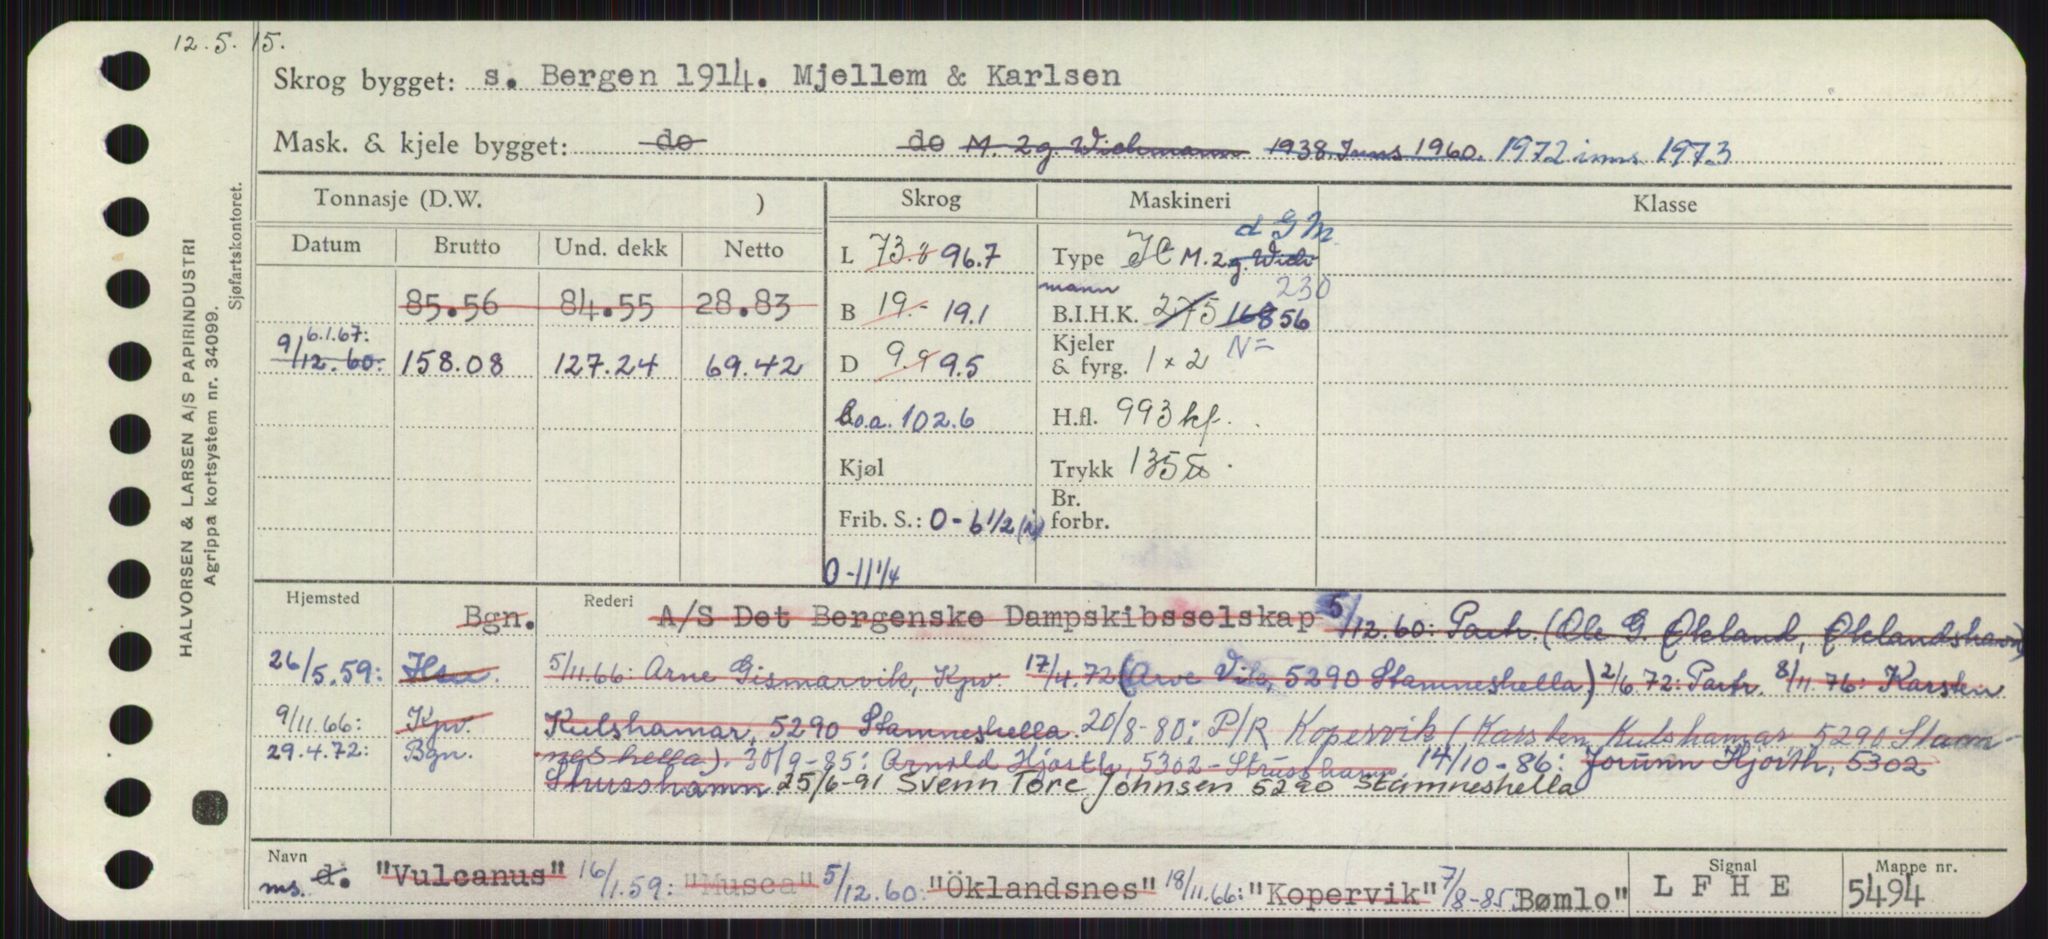 12.5.15.
Skrog bygget: s. Bergen 1914. Mjellem & Karlsen
Mask. & kjele bygget: do do M. 2 g. Wichmann 1938. Inns 1960. 1972 inns 1973
Tonnasje (D.W. ) Skrog Maskineri Klasse
Datum Brutto Und. dekk Netto
L 73.8 96.7 Type M. 2 g. Wich
d G M.
mann
85.56 84.55 28.83
B 19.- 19.1 B.I.H.K. 275 168 56
230
6.1.67:
9/12.60: 158.08 127.24 69.42
D 9.9 9.5 Kjeler & fyrg. 1 x 2
N=
Lo.a. 102.6 H.fl. 993 kf.
Kjøl Trykk 135
Frib. S.: 0-6 1/2 Br. forbr.
0-11 1/4
Hjemsted Bgn. Rederi A/S Det Bergenske Dampskibsselskap 5/12.60: Partr. (Ole G. Økland, Øklandshavn)
26/5.59: Hsu. 5/11.66: Arne Gismarvik, Kpv. 17/4.72 (Arve Vik, 5290 Stamneshella) 2/6.72: Partr. 8/11.76: Karsten
9/11.66: Kpv. Kulshamar, 5290 Stamneshella. 20/8-80: P/R Kopervik (Karsten Kulshamar 5290 Stam-
29.4.72: Bgn. neshella). 30/9-85: Arnold Hjorth, 5302 - Strusshamn. 14/10-86: Jorunn Hjorth, 5302
Strusshamn 25/6-91 Svenn Tore Johnsen 5290 Stamneshella
Navn Signal Mappe nr.
ms. d. "Vulcanus" 16/1.59: "Musca" 5/12.60: "Öklandsnes" 18/11.66: "Kopervik" 7/8-85 Bømlo" L F H E 5494
HALVORSEN & LARSEN A/S PAPIRINDUSTRI
Agrippa kortsystem nr. 34099.
Sjøfartskontoret.